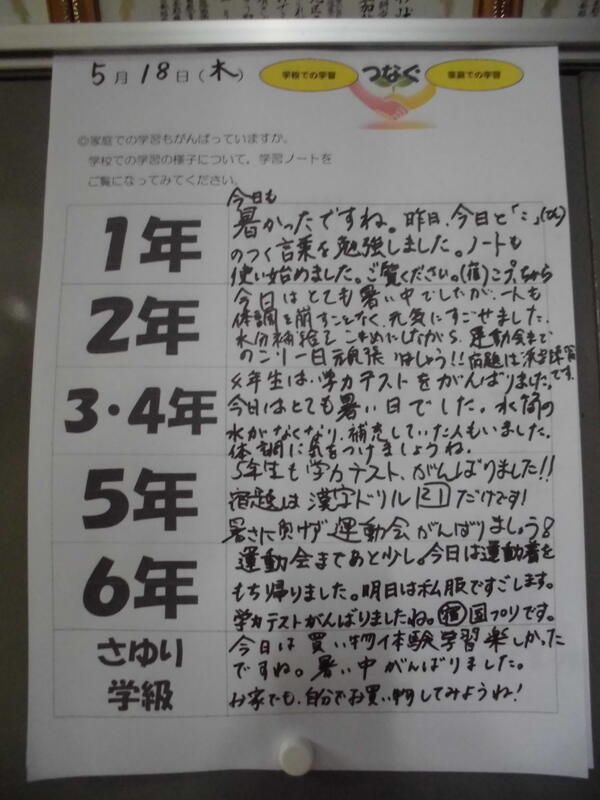 5月18日(木)
学校での学習 つなぐ 家庭での学習
◎家庭での学習もがんばっていますか。
学校での学習の様子について、学習ノートを
ご覧になってみてください。
1年
今日も
暑かったですね。昨日、今日と「こ」(の)
のつく言葉を勉強しました。ノートも
使い始めました。ご覧ください。(宿)こプ、
2年
今日はとても暑い中でしたが、一人も
体調を崩すことなく、元気にすごせました。
水分補給をこまめにしながら、運動会まで
のこり一日頑張りましょう!!宿題は漢字練習
です。
3・4年
4年生は、学力テストをがんばりました。
今日はとても暑い日でした。水筒の
水がなくなり、補充していた人もいました。
体調に気をつけましょうね。
5年
5年生も学力テスト、がんばりました!!
宿題は漢字ドリル21だけです!
暑さに負けず運動会がんばりましょう
6年
運動会まであと少し。今日は運動着を
もち帰りました。明日は私服ですごします。
学力テストがんばりましたね。宿国プリです。
さゆり
学級
今日は買い物体験学習楽しかった
ですね。暑い中がんばりました。
お家でも、自分でお買い物してみようね!